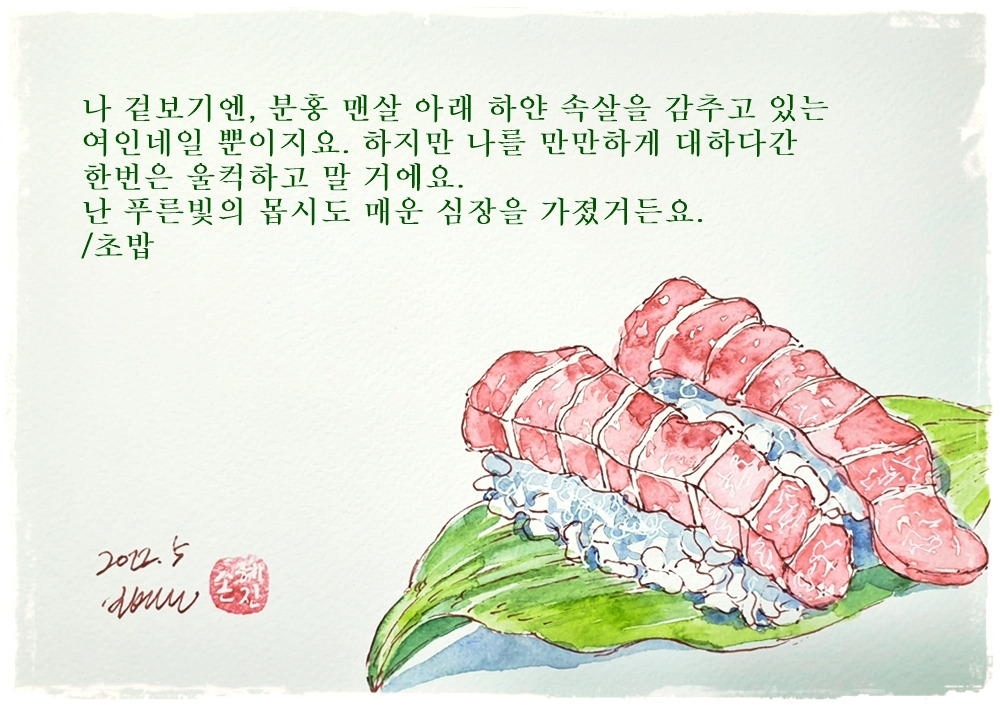 나 겉보기엔, 분홍 맨살 아래 하얀 속살을 감추고 있는
여인네일 뿐이지요. 하지만 나를 만만하게 대하다간
한번은 울컥하고 말 거에요.
난 푸른빛의 몹시도 매운 심장을 가졌거든요.
/초밥
2022. 5